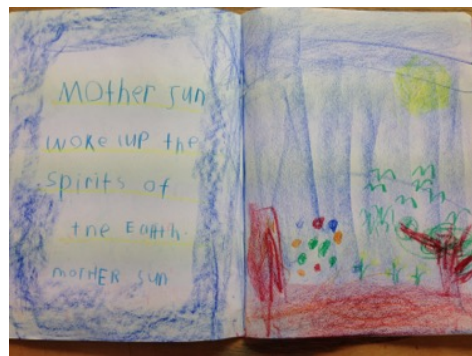 Mother sun
woke up the
spirits of
the Earth.
mother sun